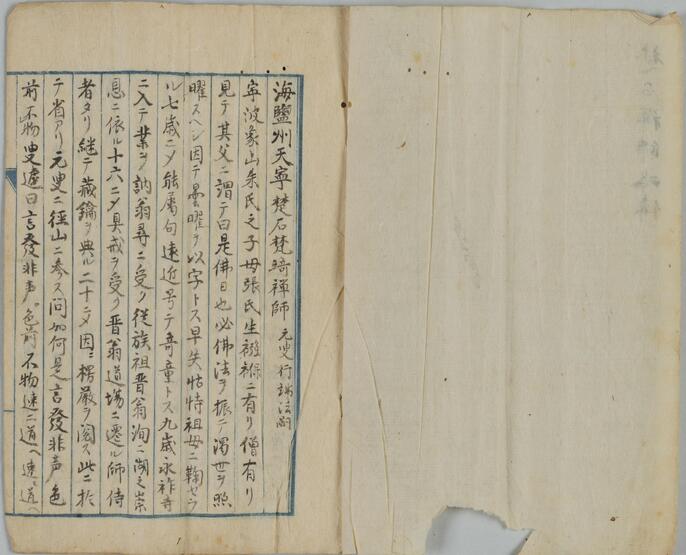 海鹽州天寧楚石梵琦禅師 元叟行端法嗣
寧波象山朱氏之子母張氏生襁褓ニ有リ僧有リ
見テ其父ニ謂テ曰是佛日也必佛法ヲ振テ濁世ヲ照
曜スヘシ因テ曇曜ヲ以字トス早失怙恃祖母ニ鞠セラ
ル七歳ニメ能属句遠近号テ奇童トス九歳永祚寺
ニ入テ業ヲ訥翁ニ受ク従族祖晋翁洵ニ湖之崇
恩ニ依ル十六ニメ具戒ヲ受ク晋翁道場ニ遷ル師侍
者タリ継テ蔵鑰ヲ典ル二十二メ因ニ楞厳ヲ閲ス此ニ於
テ省アリ元叟ニ徑山ニ参ス問如何是言發非声色
前不物叟遽曰言發非声色前不物速ニ道ヘ速ニ道ヘ